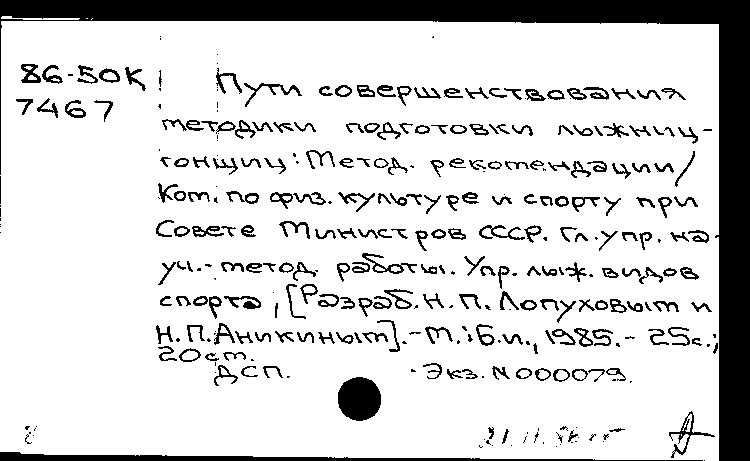 86-50К
7467
Пути совершенствования
методики подготовки лыжниц-
гонщиц: Метод. рекомендации/
Ком. по физ. культуре и спорту при
Совете Министров СССР. Гл. упр. на-
уч.-метод. работы. Упр. лыж. видов
спорта; [Разраб. Н. П. Лопуховым и
Н. П. Аникиным]. - М.: Б.и., 1985. - 25с.;
20см.
ДСП. Экз. N 000079.
8 21.11.86